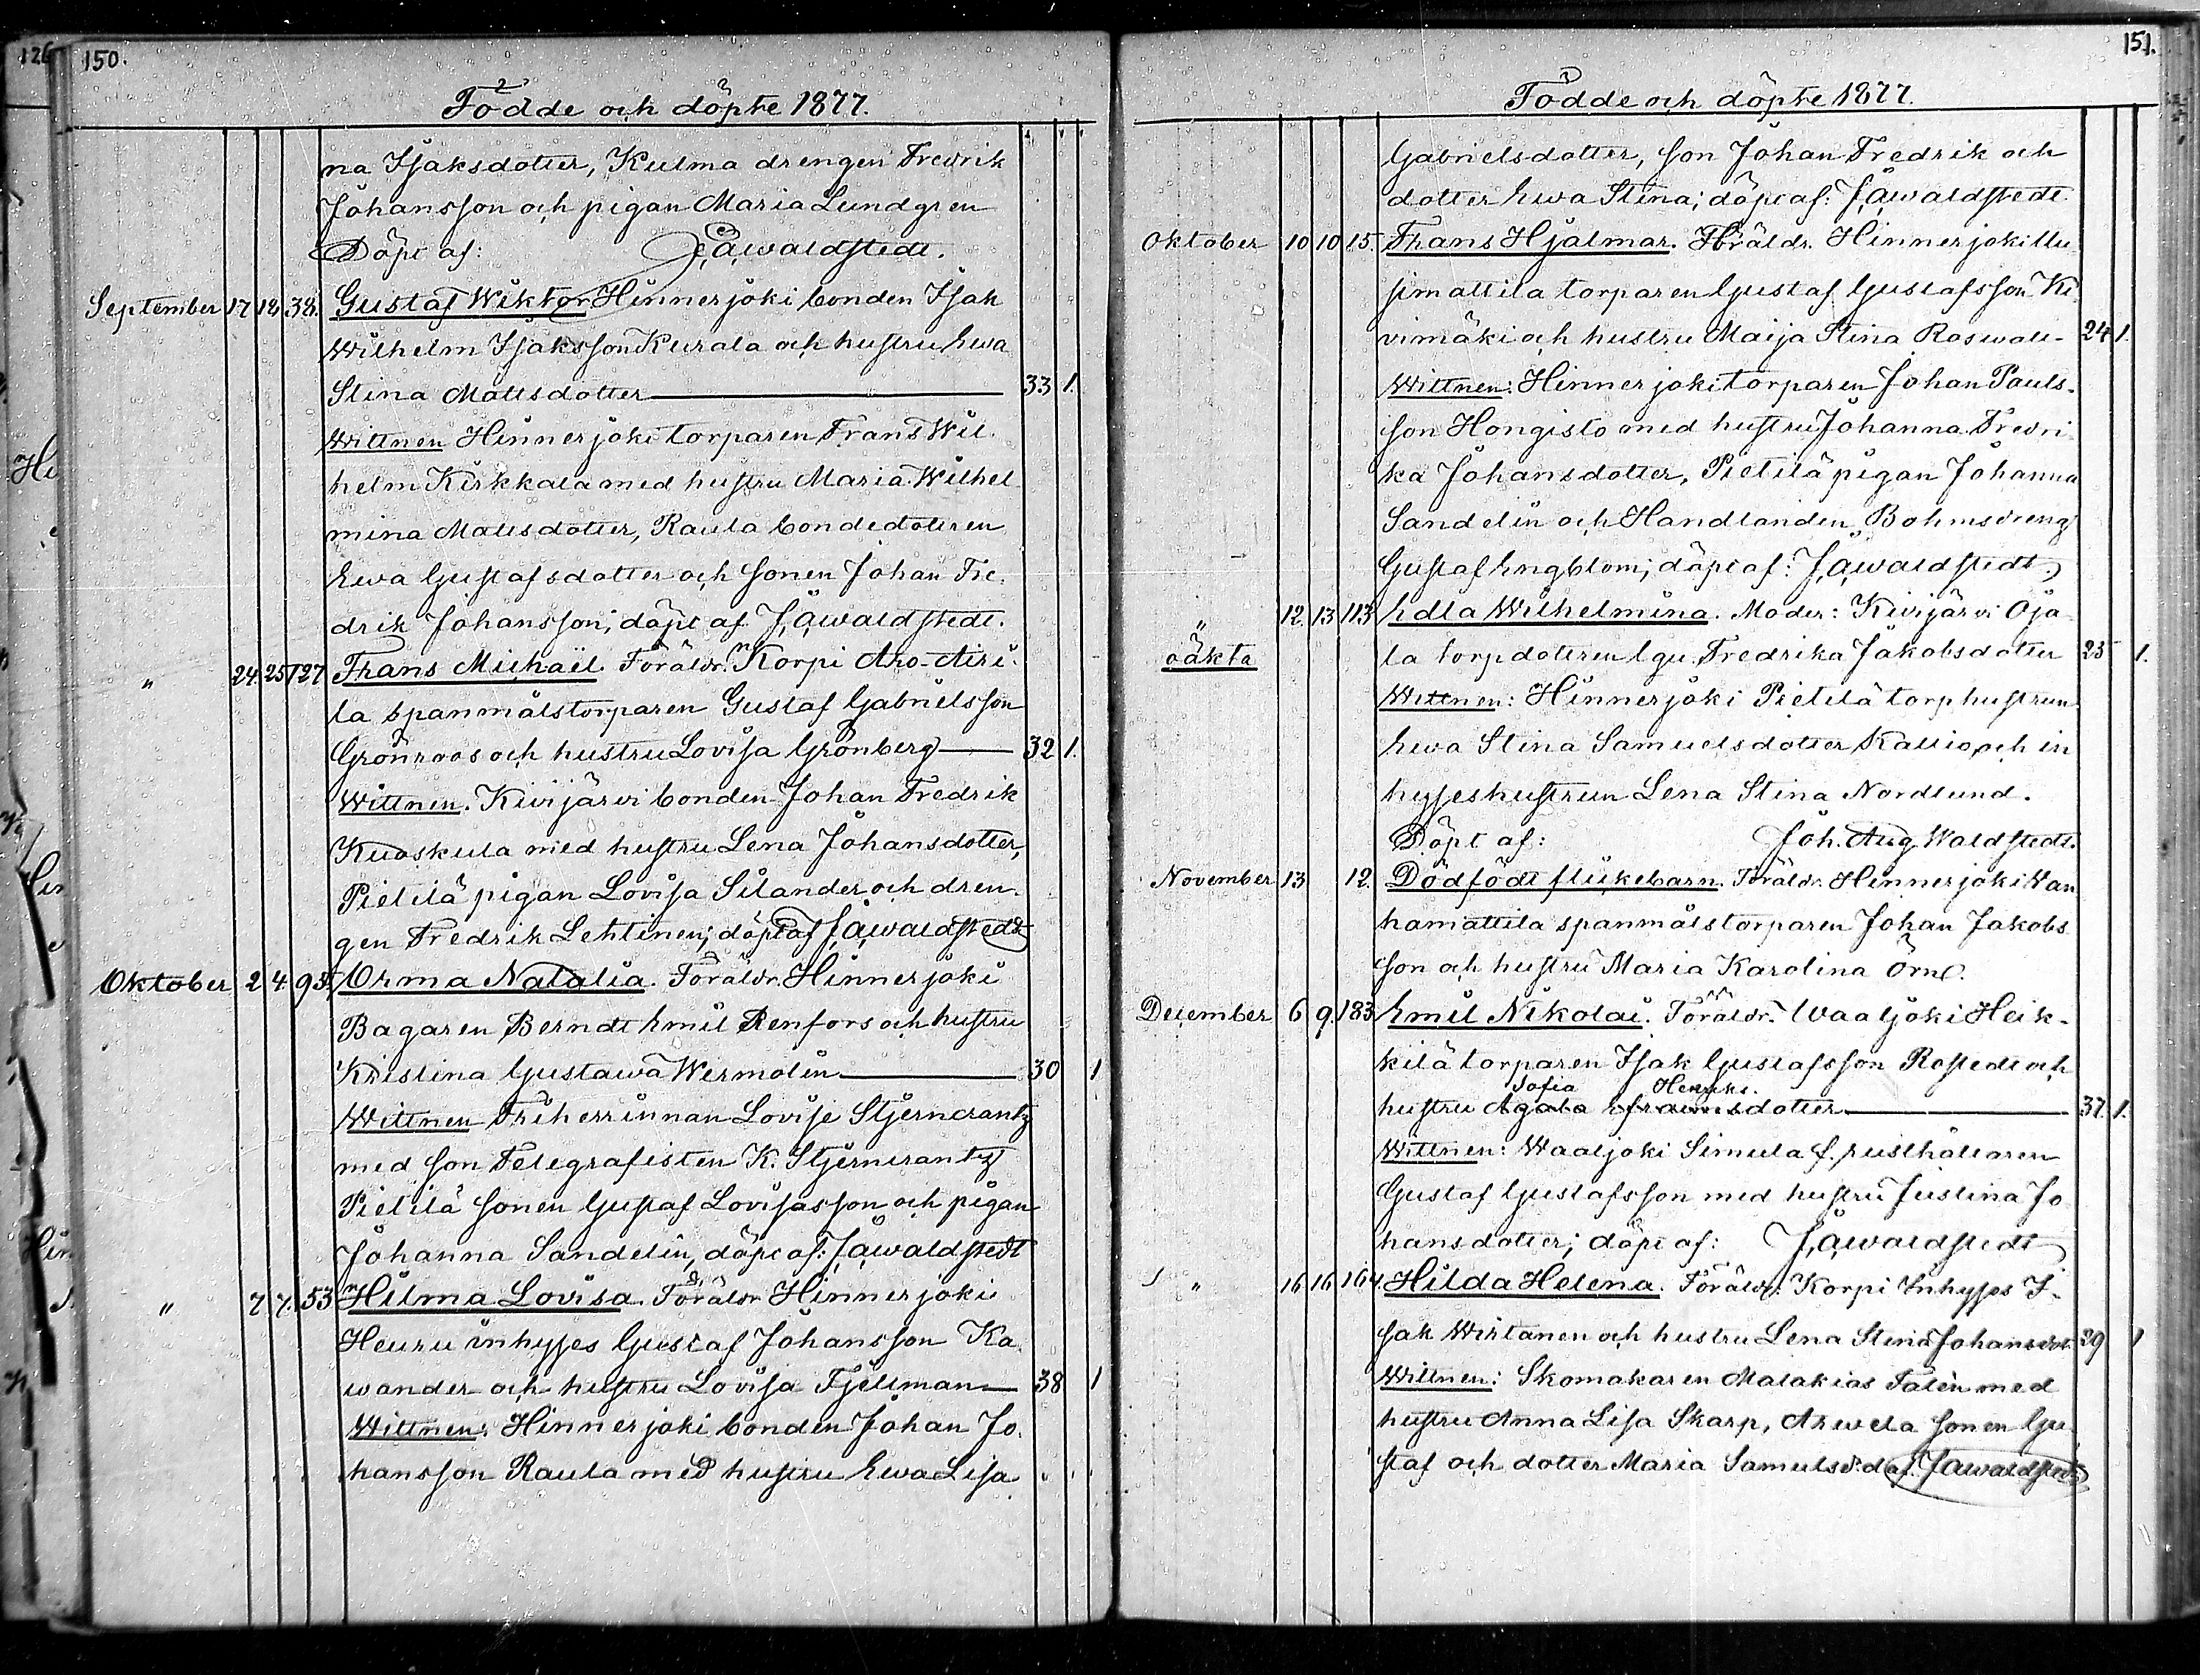 126
150.
Födde och döpte 1877.
na Isaksdotter, Kulma drengen Fredrik
Johansson och pigan Maria Lundgren
Döpt af: J. A. Waldstedt.
September 17 18 38. Gustaf Wiktor Hinnerjoki bonden Isak
Wilhelm Isaksson Kurala och hustru Ewa
Stina Mattsdotter 33 1.
Wittnen Hinnerjoki torparen Frans Wil-
helm Kirkkala med hustru Maria Wilhel
mina Mattsdotter, Raula bondedottren
Ewa Gustafsdotter och sonen Johan Fre-
drik Johansson; döpt af J. A. Waldstedt.
" 24. 25 127 Frans Michaël. Föräldr. Korpi Aro-Atri-
la spanmålstorparen Gustaf Gabrielsson
Grönroos och hustru Lovisa Grönberg 32 1.
Wittnen. Kivijärvi bonden Johan Fredrik
Kuoskula med hustru Lena Johansdotter,
Pietilä pigan Lovisa Silander och dren-
gen Fredrik Lehtinen; döpt af J. A. Waldstedt
Oktober 2 4 95. Orma Natalia. Föräldr. Hinnerjoki
Bagaren Berndt Emil Renfors och hustru
Kristina Gustawa Wermolin 30 1
Wittnen Friherrinnan Lovise Stjerncrantz
med son Telegrafisten K. Stjerncrantz
Pietilä sonen Gustaf Lovisasson och pigan
Johanna Sandelin, döpt af: J. A. Waldstedt
" 7. 7. 53 Hilma Lovisa. Föräldr. Hinnerjoki
Heuru inhyses Gustaf Johansson Ka-
wander och hustru Lovisa Fjellman 38 1
Wittnen: Hinnerjoki bonden Johan Jo-
hansson Raula med hustru Ewa Lisa
151.
Födde och döpte 1877.
Gabrielsdotter, son Johan Fredrik och
dotter Ewa Stina; döpt af: J. A. Waldstedt
Oktober 10 10 15. Frans Hjalmar. Föräldr. Hinnerjoki Uu
simattila torparen Gustaf Gustafsson Ki-
vimäki och hustru Maija Stina Roswall 24 1.
Wittnen: Hinnerjoki torparen Johan Pauls-
son Hongisto med hustru Johanna Fredri
ka Johansdotter, Pietilä pigan Johanna
Sandelin och Handlanden Bohms dreng
Gustaf Engblom; döpt af: J. A. Waldstedt.
" 12. 13 113 Edla Wilhelmina. Moder: Kivijärvi Oja
oäkta la torpdottren Fredrika Jakobsdotter 25 1.
Wittnen: Hinnerjoki Pietilä torphustrun
Ewa Stina Samuelsdotter Kallio och in
hyseshustrun Lena Stina Nordlund.
Döpt af: Joh. Aug. Waldstedt.
November 13 12. Dödfödt flickebarn. Föräldr. Hinnerjoki Wan
hamattila spanmålstorparen Johan Jakobs
son och hustru Maria Karolina Örn.
December 6 9. 183 Emil Nikolai. Föräldr. Waaljoki Heik-
kilä torparen Isak Gustafsson Rostedt och
Sofia Henriks.
hustru Agata Efraimsdotter 37. 1.
Wittnen: Waaljoki Simula f. rusthållaren
Gustaf Gustafsson med hustru Justina Jo
hansdotter; döpt af: J. A. Waldstedt
" 16 16 164. Hilda Helena. Föräldr: Korpi Inhyses I-
sak Wirtanen och hustru Lena Stina Johansdot. 29 1
Wittnen: Skomakaren Malakias Talén med
hustru Anna Lisa Skarp, Arwela sonen Gu
staf och dotter Maria Samuelsd. d. af. J. A. Waldstedt